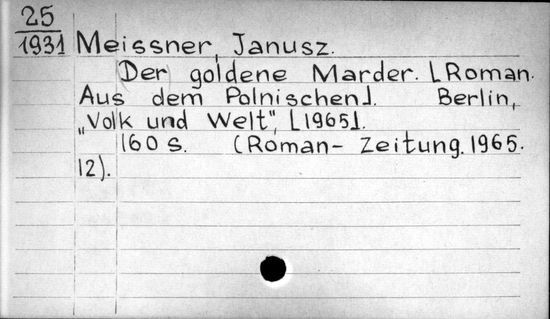 25
1931
Meissner, Janusz.
Der goldene Marder. [Roman.
Aus dem Polnischen]. Berlin,
„Volk und Welt", [1965].
160 S. (Roman- Zeitung. 1965.
12).